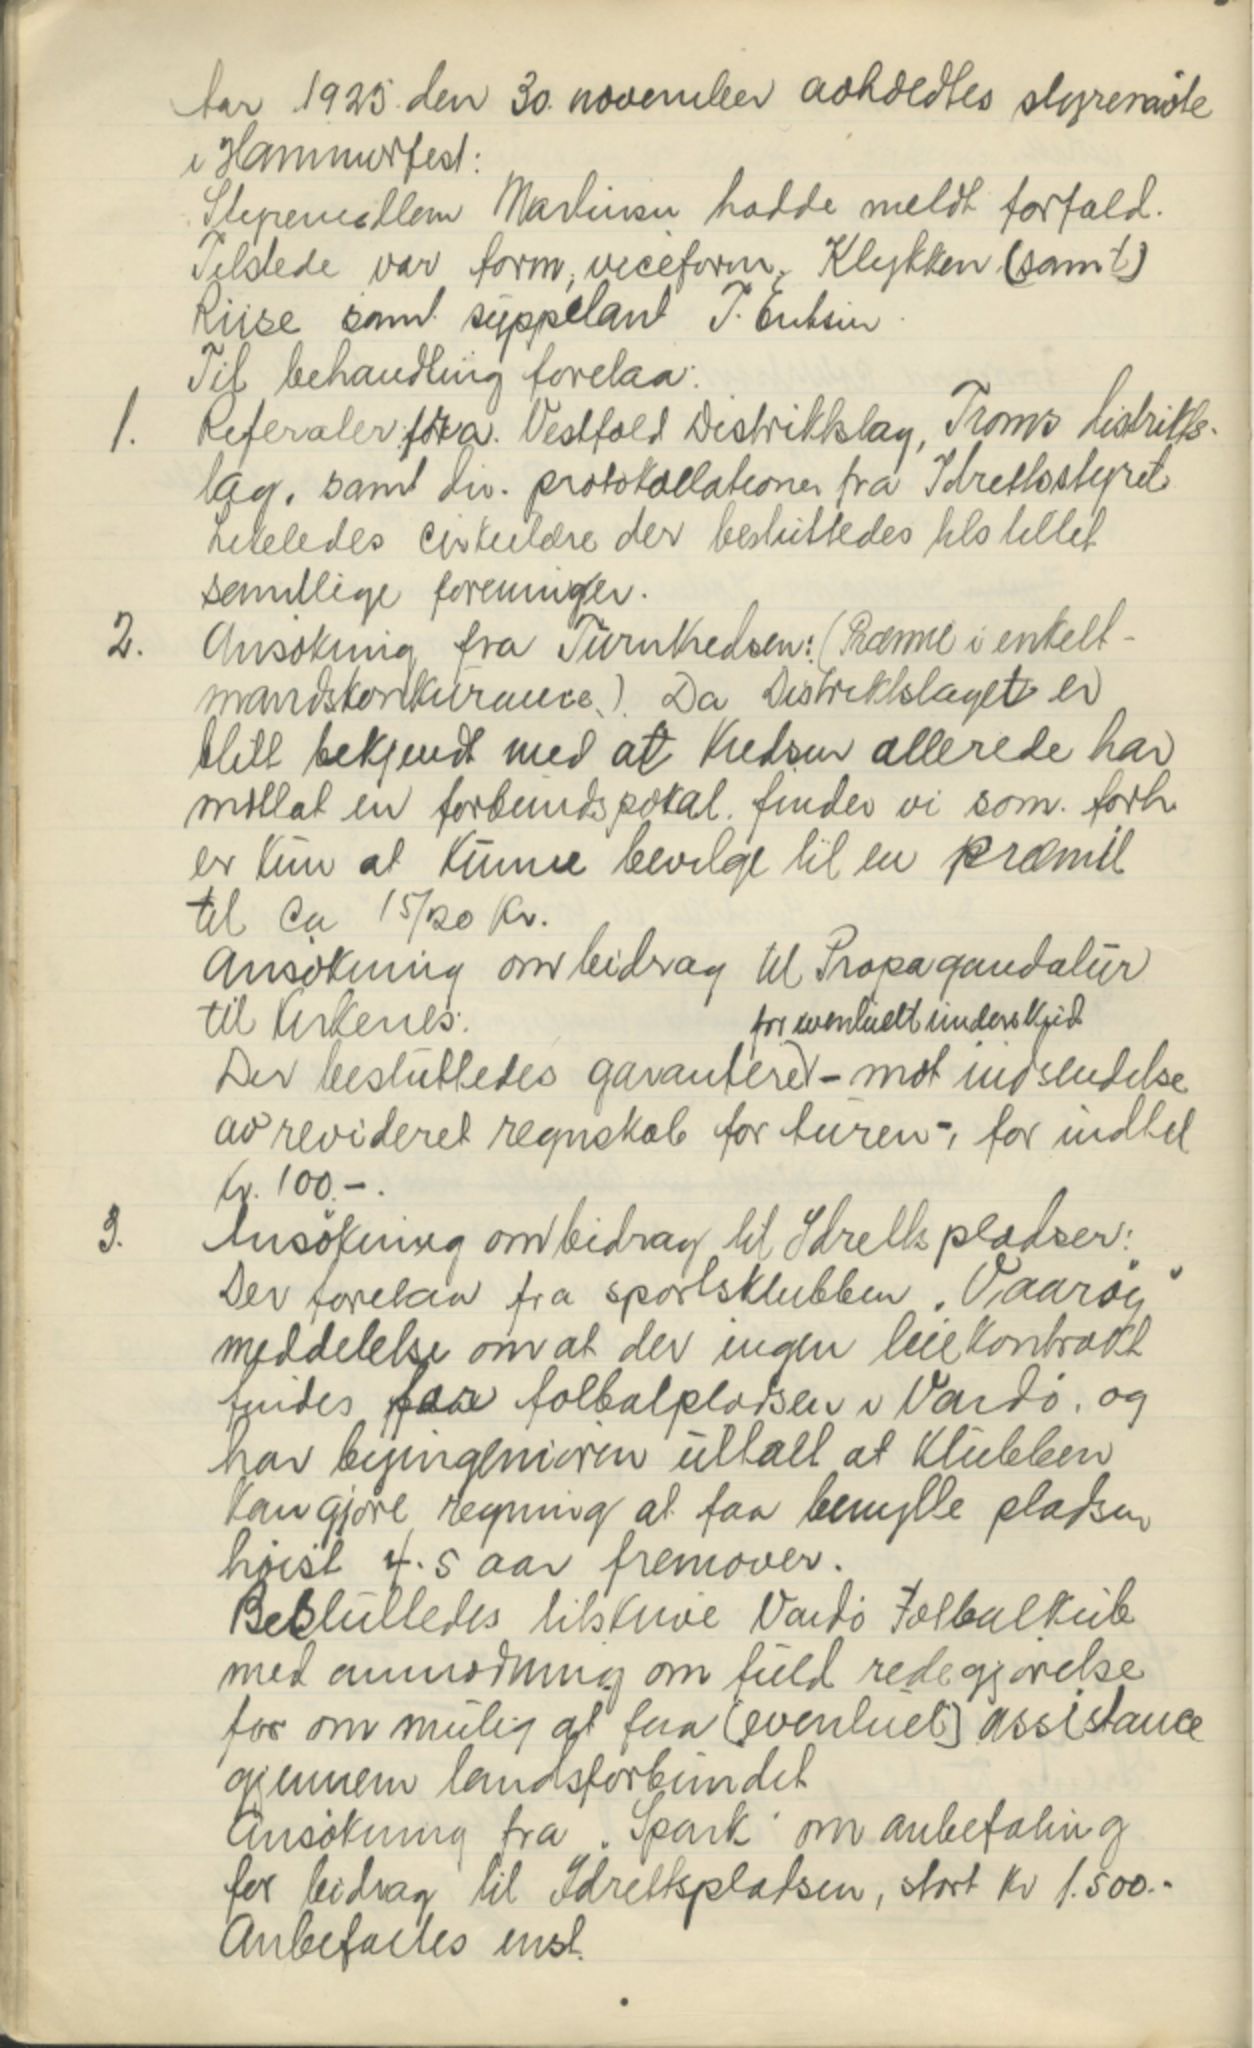 Aar 1925 den 30. november avholdtes styremöte
i Hammerfest:
Styremedlem Martinsen hadde meldt forfald.
Tilstede var form, viceform, Klykken (samt)
Riise samt suppelant T. Eriksen.
Til behandling forelaa:
1. Referater fra Vestfold Distriktslag, Troms Distrikts-
lag, samt div. protokollationer fra Idrettsstyret
Likeledes cirkulære der besluttedes tilstillet
samtlige foreninger.
2. Ansökning fra Turnkredsen: (Præmie i enkelt-
mandskonkurance.) Da Distriktslaget er
blitt bekjendt med at Kredsen allerede har
mottat en forbundspokal. finder vi som. forh.
er kun at kunne bevilge til en præmie
til ca 15/20 Kr.
Ansökning om bidrag til Propagandatur
til Kirkenes:
for eventuelt underskud
Der besluttedes garanteret - mot indsendelse
av revideret regnskab for turen -, for indtil
kr. 100.-.
3. Ansökning om bidrag til Idrettspladser:
Der forelaa fra sportsklubben "Vaarög"
meddelelse om at der ingen leiekontrakt
findes for fotbalpladsen i Vardö, og
har byingeniören uttalt at Klubben
kan gjöre regning at faa benytte pladsen
höist 4-5 aar fremover.
Besluttedes tilskrive Vardö Fotbalklub
med anmodning om fuld redegjörelse
for om mulig at faa (eventuel) assistance
gjennem landsforbundet
Ansökning fra "Spark" om anbefaling
for bidrag til Idrettspladsen, stort kr 1.500.-
Anbefales enst.